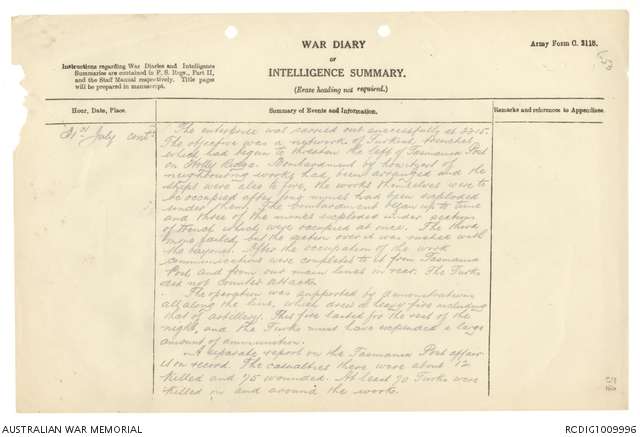 WAR DIARY
or
INTELLIGENCE SUMMARY.
(Erase heading not required.)
Army Form C. 2118.
Instructions regarding War Diaries and Intelligence
Summaries are contained in F. S. Regs., Part II,
and the Staff Manual respectively. Title pages
will be prepared in manuscript.
Hour, Date, Place.
Summary of Events and Information.
Remarks and references to Appendices.
31st July contd
The enterprise was carried out successfully at 22.15.
The objective was a network of Turkish trenches,
which had begun to threaten the left of Tasmania Post
on Holly Ridge. Bombardment by howitzers of
neighbouring works had been arranged and the
ships were also to fire, the works themselves were to
be occupied after four mines had been exploded
under them. The bombardment began up to time
and three of the mines exploded under sections
of trench which were occupied at once. The third
mine failed, but the section over it was rushed with
the bayonet. After the occupation of the work
communications were completed to it from Tasmania
Post and from our main lines in rear. The Turks
did not counter attack.
The operation was supported by demonstrations
all along the line, which drew a heavy fire including
that of artillery. This fire lasted for the rest of the
night, and the Turks must have expended a large
amount of ammunition.
A separate report on the Tasmania Post affair
is on record. The casualties there were about 12
killed and 75 wounded. At least 70 Turks were
killed in and around the works.
AUSTRALIAN WAR MEMORIAL
RCDIG1009996